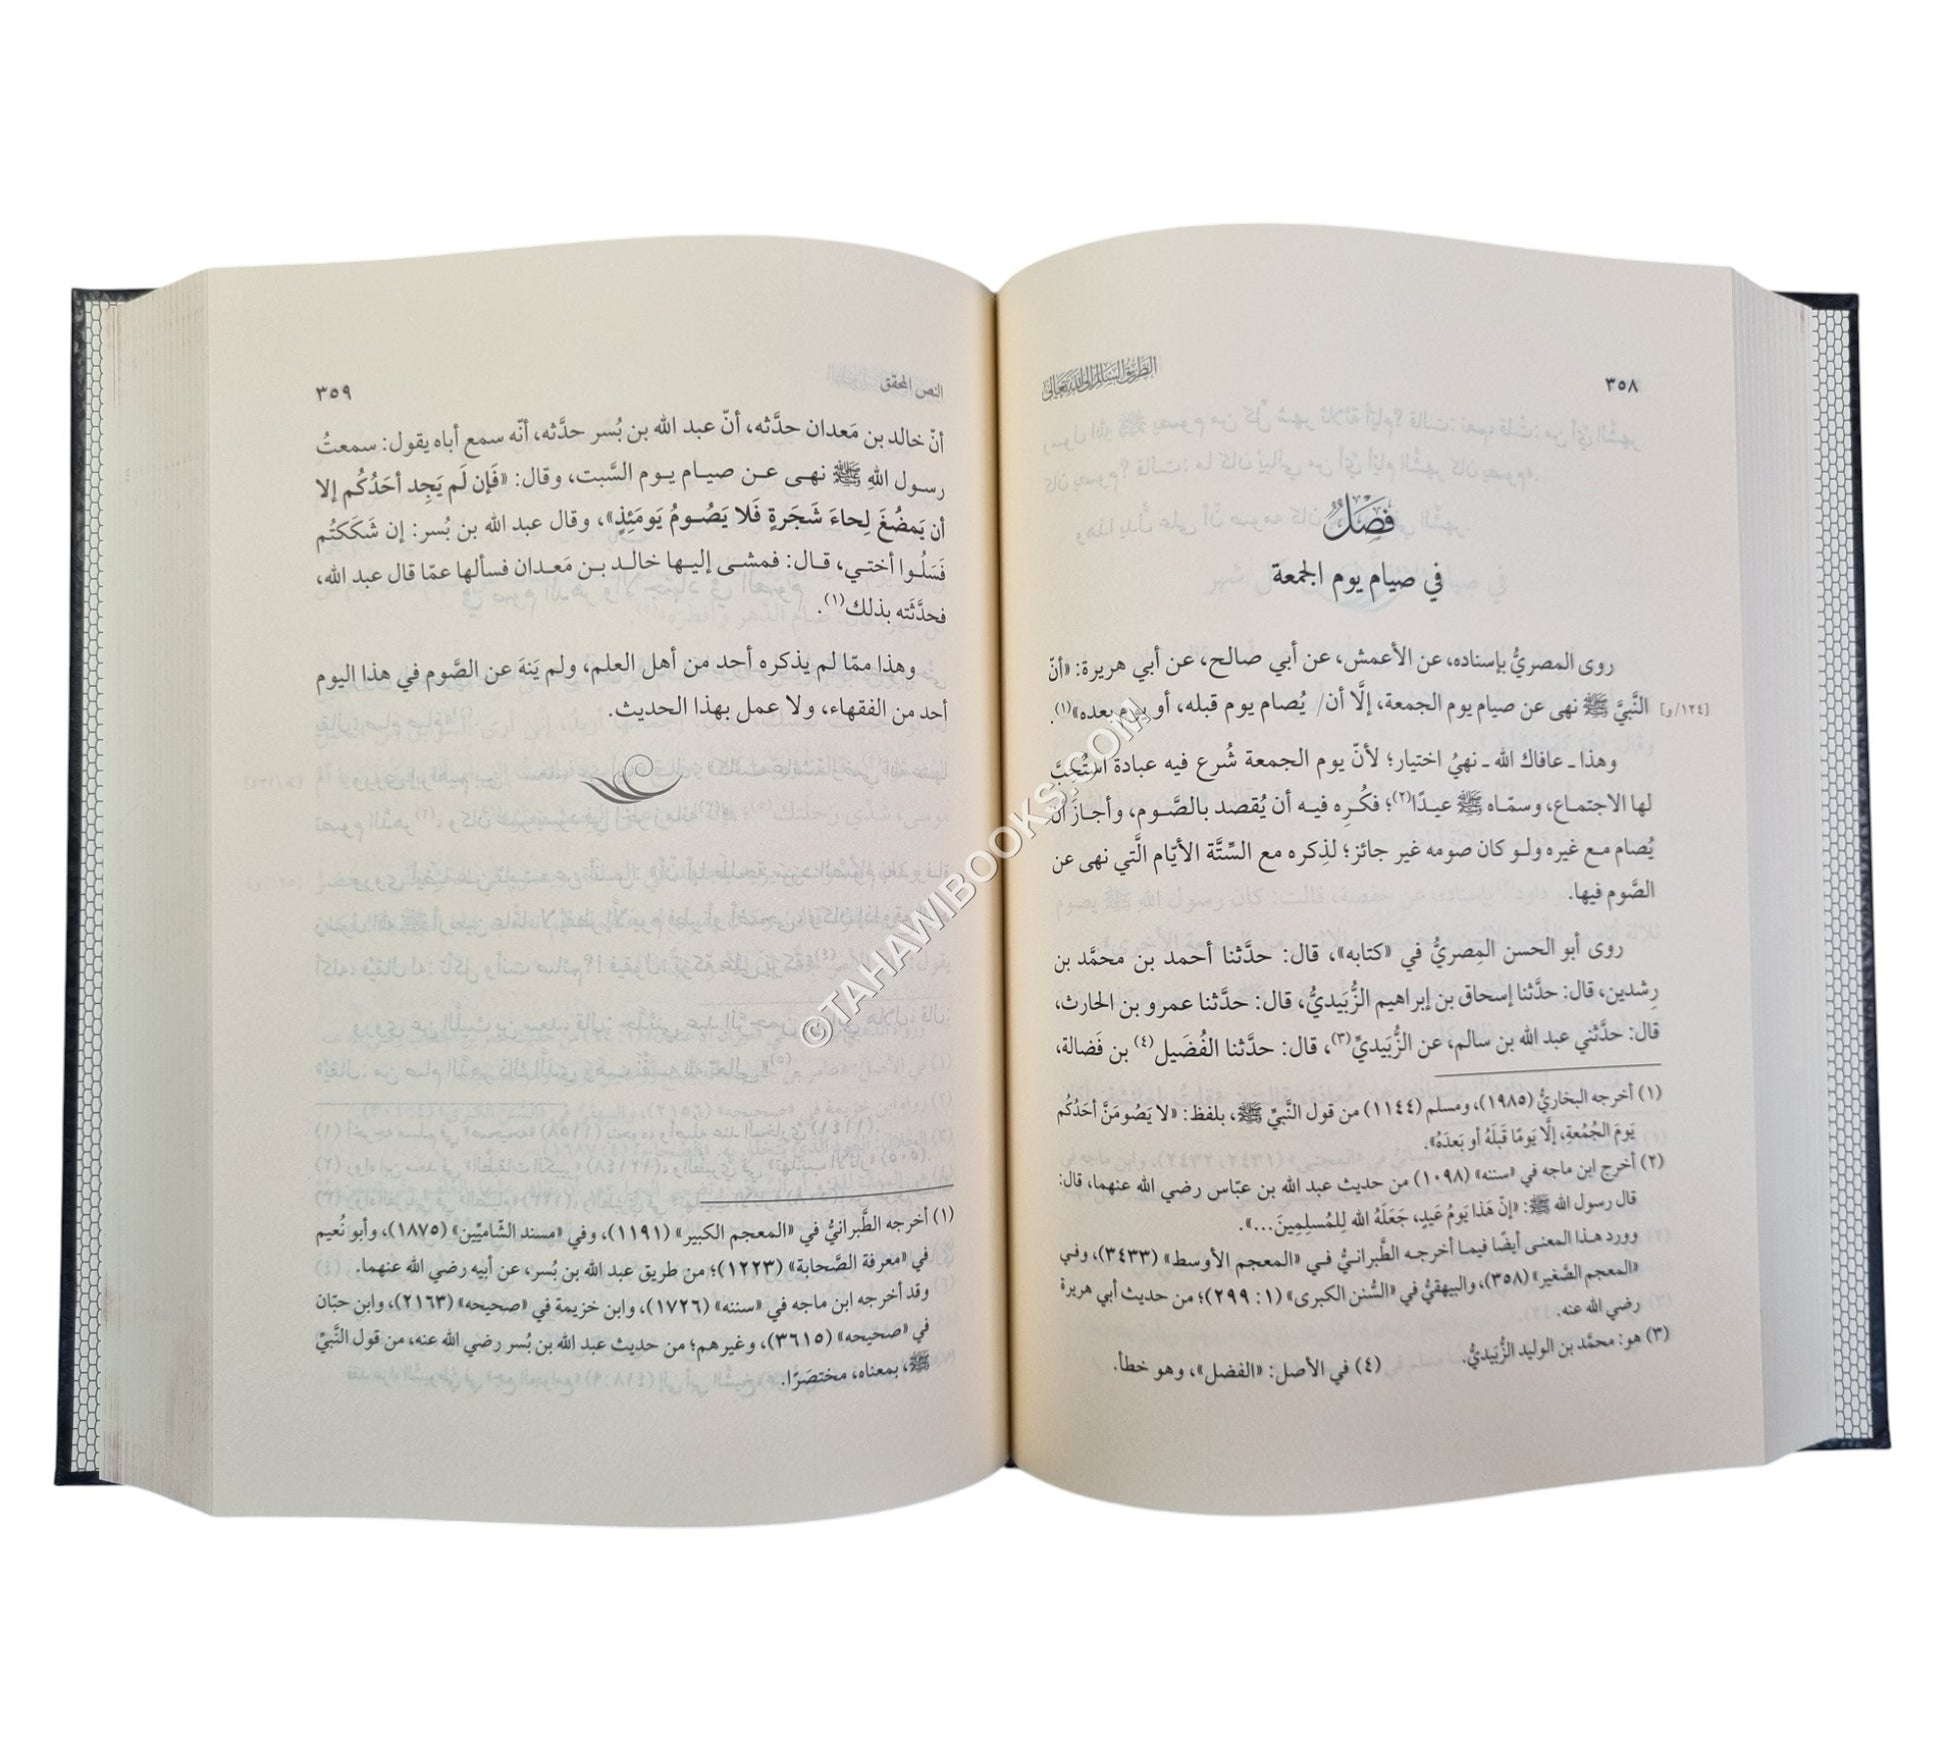 ٣٥٨
الطريق السالم إلى الله تعالى
فَصْلٌ
في صيام يوم الجمعة
روى المصريُّ بإسناده، عن الأعمش، عن أبي صالح، عن أبي هريرة: «أنّ
[١٢٤/و] النَّبيَّ ﷺ نهى عن صيام يوم الجمعة، إلَّا أن/ يُصام يوم قبله، أو يوم بعده»(١).
وهذا ـ عافاك الله ـ نهيُ اختيار؛ لأنّ يوم الجمعة شُرع فيه عبادة استُحبَّ
لها الاجتماع، وسمّاه ﷺ عيدًا(٢)؛ فكُره فيه أن يُقصد بالصَّوم، وأجازَ أن
يُصام مع غيره ولو كان صومه غير جائز؛ لذِكره مع السِّتَّة الأيّام الَّتي نهى عن
الصَّوم فيها.
روى أبو الحسن المِصريُّ في «كتابه»، قال: حدَّثنا أحمد بن محمَّد بن
رِشدين، قال: حدَّثنا إسحاق بن إبراهيم الزُّبَيديُّ، قال: حدَّثنا عمرو بن الحارث،
قال: حدَّثني عبد الله بن سالم، عن الزُّبَيديِّ(٣)، قال: حدَّثنا الفُضَيل(٤) بن فَضالة،
(١) أخرجه البخاريُّ (١٩٨٥)، ومسلم (١١٤٤) من قول النَّبيِّ ﷺ، بلفظ: «لا يَصُومَنَّ أحَدُكُم
يَومَ الجُمُعةِ، إلَّا يَومًا قَبلَهُ أو بَعدَهُ».
(٢) أخرج ابن ماجه في «سننه» (١٠٩٨) من حديث عبد الله بن عبّاس رضي الله عنهما، قال:
قال رسول الله ﷺ: «إنّ هَذا يَومُ عَيدٍ، جَعَلَهُ الله لِلمُسلِمِينَ...».
وورد هذا المعنى أيضًا فيما أخرجه الطَّبرانيُّ في «المعجم الأوسط» (٣٤٣٣)، وفي
«المعجم الصَّغير» (٣٥٨)، والبيهقيُّ في «السُّنن الكبرى» (١: ٢٩٩)؛ من حديث أبي هريرة
رضي الله عنه.
(٣) هو: محمَّد بن الوليد الزُّبَيديُّ.
(٤) في الأصل: «الفضل»، وهو خطأ.
النص المحقق
٣٥٩
أنّ خالد بن مَعدان حدَّثه، أنّ عبد الله بن بُسر حدَّثه، أنّه سمع أباه يقول: سمعتُ
رسول اللهِ ﷺ نهى عن صيام يوم السَّبت، وقال: «فَإن لَم يَجِد أحَدُكُم إلا
أن يَمضُغَ لِحاءَ شَجَرةٍ فَلا يَصُومُ يَومَئِذٍ»، وقال عبد الله بن بُسر: إن شَكَكتُم
فَسَلُوا أختي، قال: فمشى إليها خالد بن مَعدان فسألها عمّا قال عبد الله،
فحدَّثَته بذلك(١).
وهذا ممّا لم يذكره أحد من أهل العلم، ولم يَنهَ عن الصَّوم في هذا اليوم
أحد من الفقهاء، ولا عمل بهذا الحديث.
(١) أخرجه الطَّبرانيُّ في «المعجم الكبير» (١١٩١)، وفي «مسند الشّاميِّين» (١٨٧٥)، وأبو نُعيم
في «معرفة الصَّحابة» (١٢٢٣)؛ من طريق عبد الله بن بُسر، عن أبيه رضي الله عنهما.
وقد أخرجه ابن ماجه في «سننه» (١٧٢٦)، وابن خزيمة في «صحيحه» (٢١٦٣)، وابن حبّان
في «صحيحه» (٣٦١٥)، وغيرهم؛ من حديث عبد الله بن بُسر رضي الله عنه، من قول النَّبيِّ
ﷺ، بمعناه، مختصَرًا.
©TAHAWIBOOKS.COM